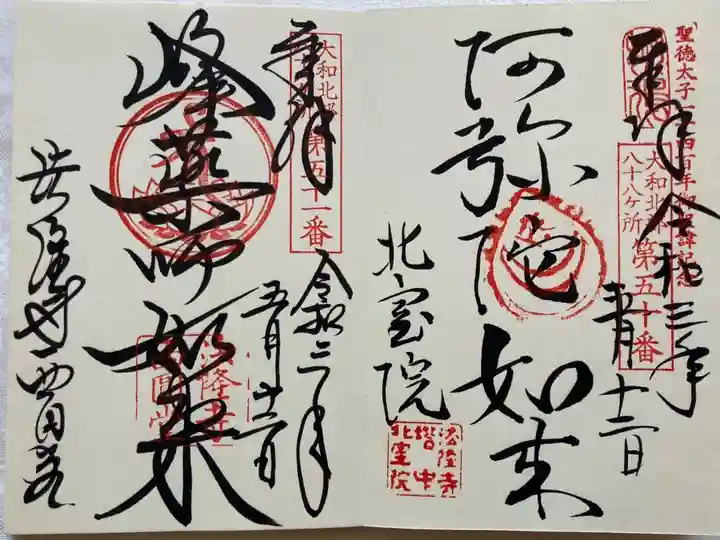 聖徳太子一千四百年御聖諱記念
奉拝
令和三年
大和北部
八十八ヶ所
第五十番
五月十二日
阿弥陀如来
北室院
法隆寺
塔中
北室院
奉拝
大和北部
第五十一番
令和三年
五月十二日
峰薬師如来
法隆寺
西圓堂
法隆寺西円堂